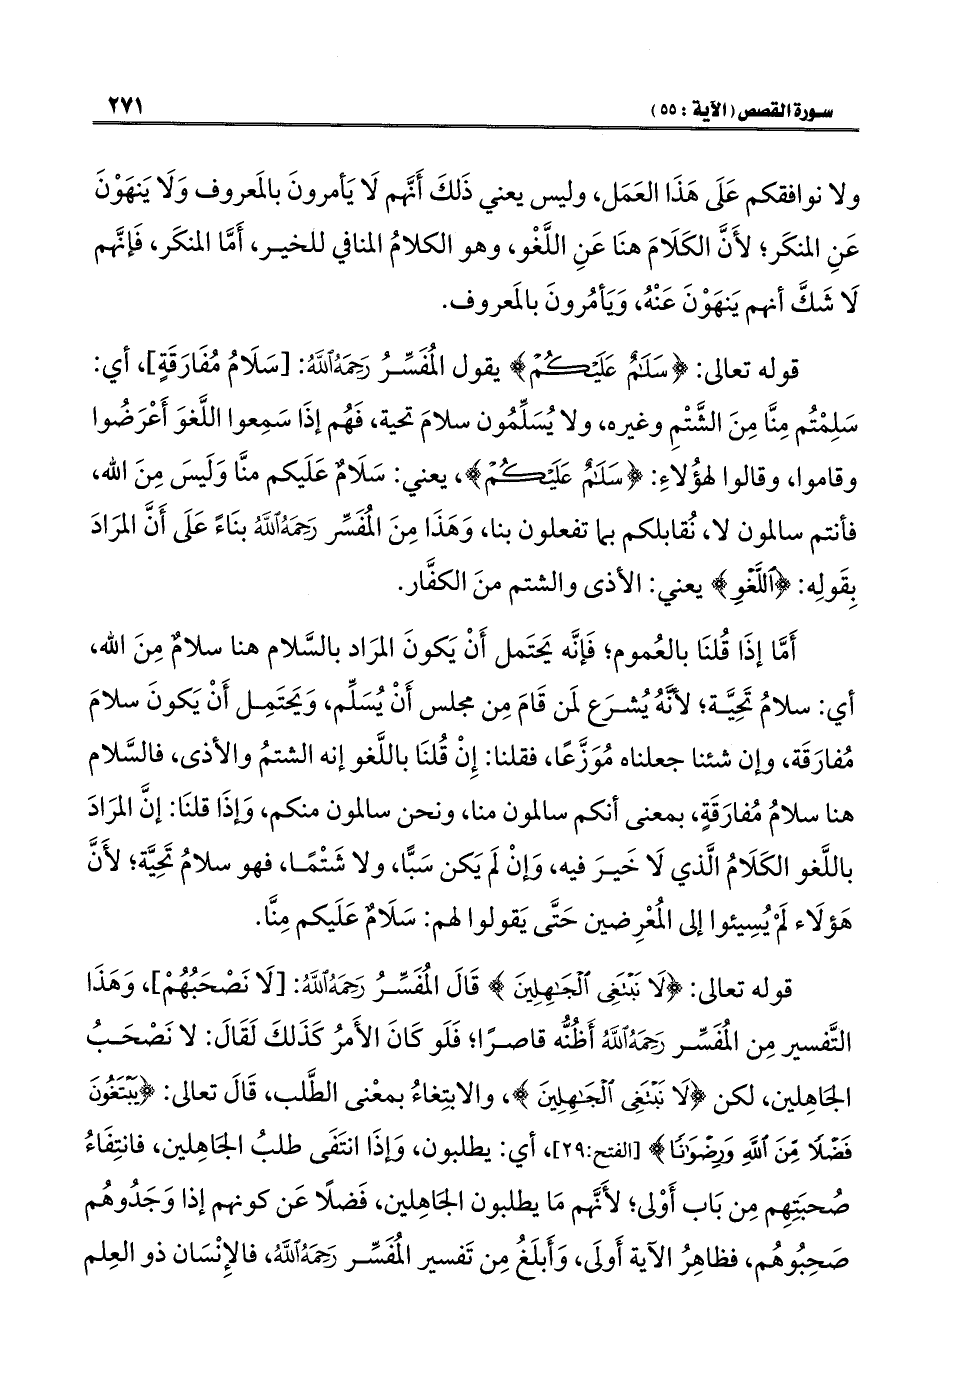 سورة القصص (الآية : ٥٥)
٢٧١
ولا نوافقكم عَلَى هَذَا العَمَل، وليس يعني ذَلكَ أَنَّهم لَا يَأمرونَ بالمَعروف وَلَا يَنهَوْنَ
عَنِ المنكَر؛ لأَنَّ الكَلَامَ هنَا عَنِ اللَّغْو، وهو الكلامُ المنافي للخيـر، أَمَّا المنكَر، فَإنَّهم
لَا شَكَّ أنهم يَنهَوْنَ عَنْهُ، وَيَأمُرونَ بالمَعروف.
قوله تعالى: ﴿سَلَٰمٌ عَلَيۡكُمۡ﴾ يقول المُفَسِّـرُ رَحِمَهُ ٱللَّهُ: [سَلَامُ مُفَارَقَةٍ]، أي:
سَلِمْتُم مِنَّا مِنَ الشَّتْمِ وغيره، ولا يُسَلِّمُون سلامَ تحية، فَهُم إذَا سَمِعوا اللَّغوَ أَعْرَضُوا
وقاموا، وقالوا لهؤُلاءِ: ﴿سَلَٰمٌ عَلَيۡكُمۡ﴾، يعني: سَلَامٌ عَلَيكم منَّا وَلَيسَ مِنَ الله،
فأنتم سالمون لا، نُقابلكم بما تفعلون بنا، وَهَذَا مِنَ المُفَسِّر رَحِمَهُ ٱللَّهُ بنَاءً عَلَى أَنَّ المرَادَ
بِقَولِه: ﴿ٱللَّغۡوِ﴾ يعني: الأذى والشتم منَ الكفَّار.
أَمَّا إذَا قُلنَا بالعُموم؛ فَإنَّه يَحتمل أَنْ يَكونَ المرَاد بالسَّلام هنا سلامٌ مِنَ الله،
أي: سلامُ تَحِيَّـة؛ لأنَّهُ يُشـرَع لمَن قَامَ مِن مجلس أَنْ يُسَلِّم، وَيَحتَمِـل أَنْ يَكونَ سلامَ
مُفارَقَة، وإن شئنا جعلناه مُوَزَّعًا، فقلنا: إنْ قُلنَا باللَّغو إنه الشتمُ والأذى، فالسَّلام
هنا سلامُ مُفارَقَةٍ، بمعنى أنكم سالمون منا، ونحن سالمون منكم، وَإذَا قلنَا: إنَّ المرَادَ
باللَّغو الكَلَامُ الَّذي لَا خَيـرَ فيه، وَإنْ لَم يَكن سَبًّا، ولا شَتْمًـا، فهو سلامُ تَحِيَّة؛ لأَنَّ
هَؤلَاء لَمْ يُسِيئوا إلى المُعْرضين حَتَّى يَقولوا لهم: سَلَامٌ عَلَيكم مِنَّا.
قوله تعالى: ﴿لَا نَبۡتَغِي ٱلۡجَٰهِلِينَ﴾ قَالَ المُفَسِّـرُ رَحِمَهُ ٱللَّهُ: [لَا نَصْحَبُهُمْ]، وَهَذَا
التَّفسير مِن المُفَسِّـر رَحِمَهُ ٱللَّهُ أَظنُّه قاصـرًا؛ فَلَو كَانَ الأمرُ كَذَلكَ لَقَالَ: لا نَصْحَـبُ
الجَاهِلين، لكن ﴿لَا نَبۡتَغِي ٱلۡجَٰهِلِينَ﴾، والابتِغاءُ بمعْنى الطَّلب، قَالَ تعالى: ﴿يَبۡتَغُونَ
فَضۡلًا مِّنَ ٱللَّهِ وَرِضۡوَٰنًا﴾ [الفتح:٢٩]، أي: يطلبون، وَإذَا انتَفَى طلبُ الجَاهِلين، فانتِفَاءُ
صُحبَتِهم مِن بَاب أَوْلى؛ لأَنَّهم مَا يطلبون الجَاهلين، فَضلًا عَن كونهم إذا وَجَدُوهُم
صَحِبُوهُم، فظاهِرُ الآية أَولَى، وَأَبلَغُ مِن تَفسير المُفَسِّـر رَحِمَهُ ٱللَّهُ، فالإنْسَان ذو العِلم